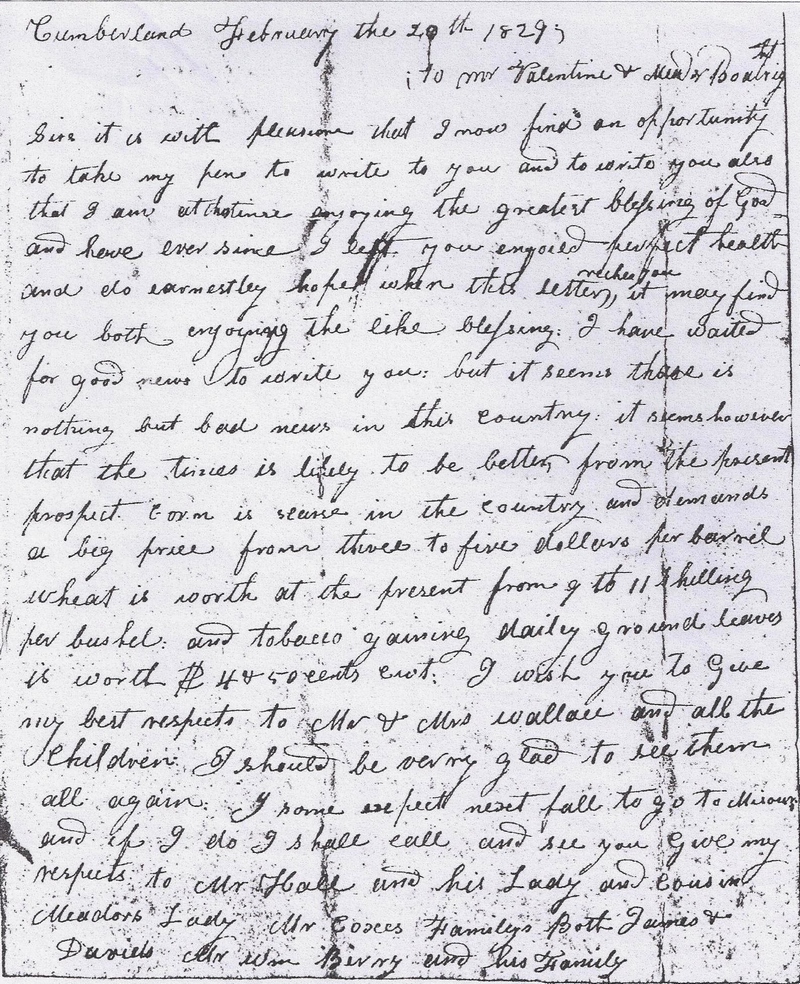 Cumberland February the 20th 1829;
to Mr Valentine & Meadr Boatright
Sirs it is with pleasure that I now find an opportunity
to take my pen to write to you and to write you also
that I am at this time enjoying the greatest blessing of God
and have ever since I left you engoied perfect health
and do earnestley hope when this letter reches you it may find
you both enjoying the like blessing: I have waited
for good news to write you: but it seems thare is
nothing but bad news in this country: it seems however
that the times is likly to be better from the present
prospect Corn is scarse in the country and demands
a big price from three to five dollars per barrel
wheat is worth at the present from 9 to 11 shilling
per bushel: and tobacco gaining dailey ground leaves
is worth $ 4 & 50 cents cwt: I wish you to Give
my best respects to Mr & Mrs Wallace and all the
Children I should be verry glad to see them
all again: I some expect next fall to go to
and if I do I shall call and see you Give my
respects to Mr Hall and his Lady and Cousin
Meadors Lady Mr Coxes Familys Both James &
Davids Mr Wm Berry and his Family